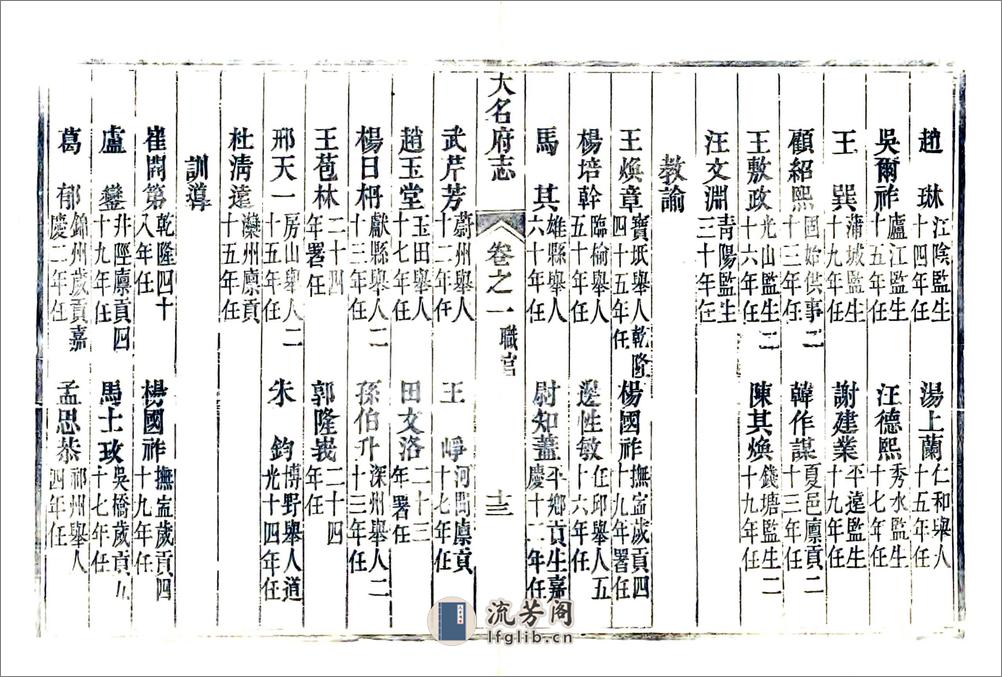 趙　琳江陰監生十四年任　湯上蘭仁和舉人十五年任
吳爾祚廬江監生十五年任　汪德熙秀水監生十七年任
王　巽蒲城監生十九年任　謝建業平遠監生十九年任
顧紹熙固始供事二十三年任　韓作謀夏邑廩貢二十三年任
王敷政光山監生二十六年任　陳其煥錢塘監生二十九年任
汪文淵青陽監生三十年任
教諭
王煥章寶坻舉人乾隆四十五年任　楊國祚撫寧歲貢四十九年署任
楊培幹臨榆舉人五十年任　邊性敏任邱舉人五十六年任
馬　其雄縣舉人六十年任　尉知藎平鄉貢生嘉慶十二年任
大名府志　卷之一　職官　十三
武芹芳蔚州舉人十二年任　王　崢河間廩貢十七年任
趙玉堂玉田舉人十七年任　田文洛二十三年署任
楊日枬獻縣舉人二十三年任　孫伯升深州舉人二十三年任
王苞林二十四年署任　郭隆峩二十四年任
邢天一房山舉人二十五年任　朱　鈞博野舉人道光十四年任
杜清遠灤州廩貢十五年任
訓導
崔開第乾隆四十八年任　楊國祚撫寧歲貢四十九年任
盧　井陘廩貢四十九年任　馬士玫吳橋歲貢五十七年任
葛　郁錦州歲貢嘉慶二年任　孟思恭祁州舉人四年任
流芳阁
lfglib.cn